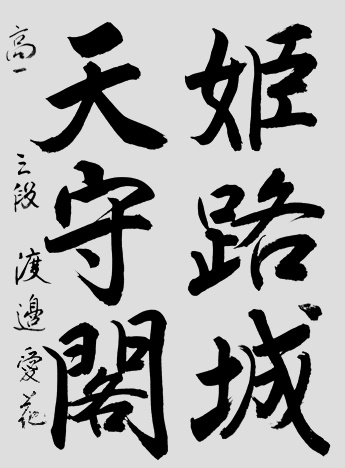 姫路城
天守閣
高一 三段 渡邉愛花